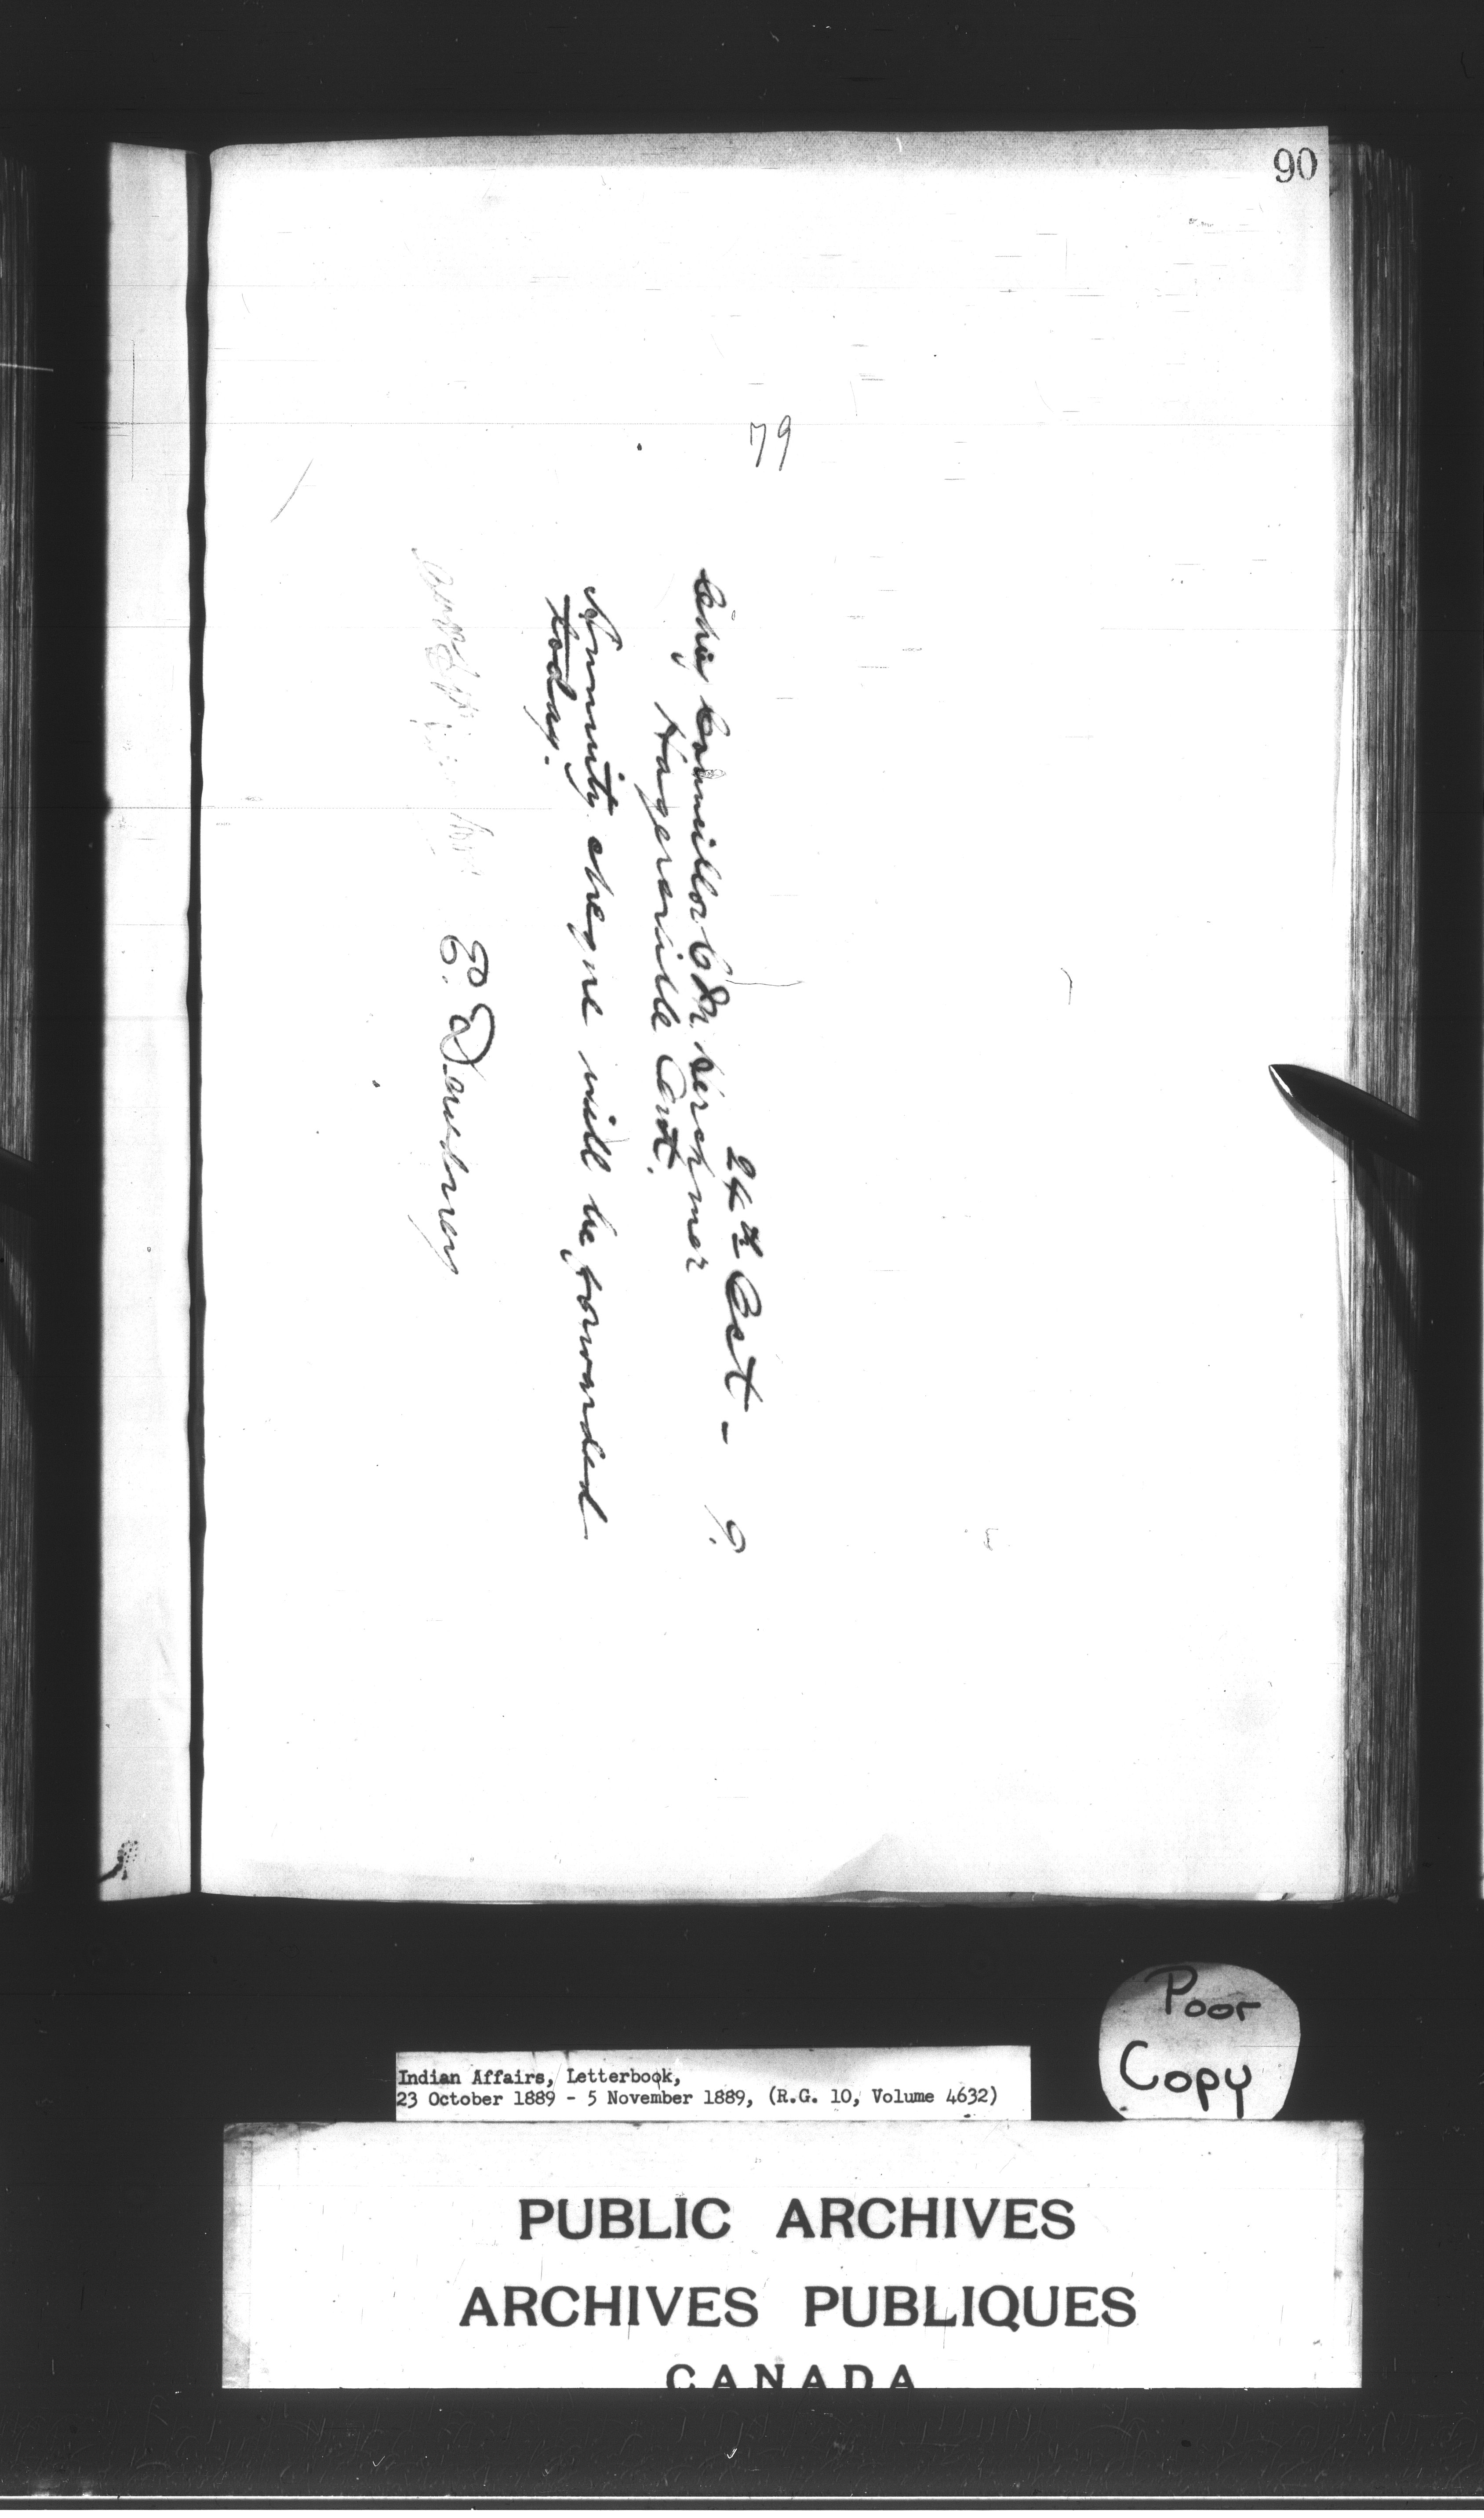 90
79
24th Oct - 9.
Chief Councillor
Hagersville Ont.
Annuity cheque will be forwarded
today.
E. Dewdney
Poor
Copy
Indian Affairs, Letterbook,
23 October 1889 - 5 November 1889, (R.G. 10, Volume 4632)
PUBLIC ARCHIVES
ARCHIVES PUBLIQUES
CANADA